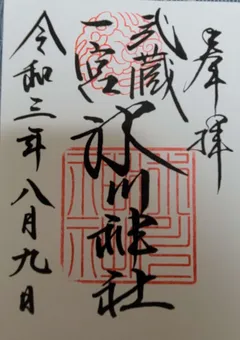 奉拝
武蔵
一宮
氷川神社
令和三年八月九日